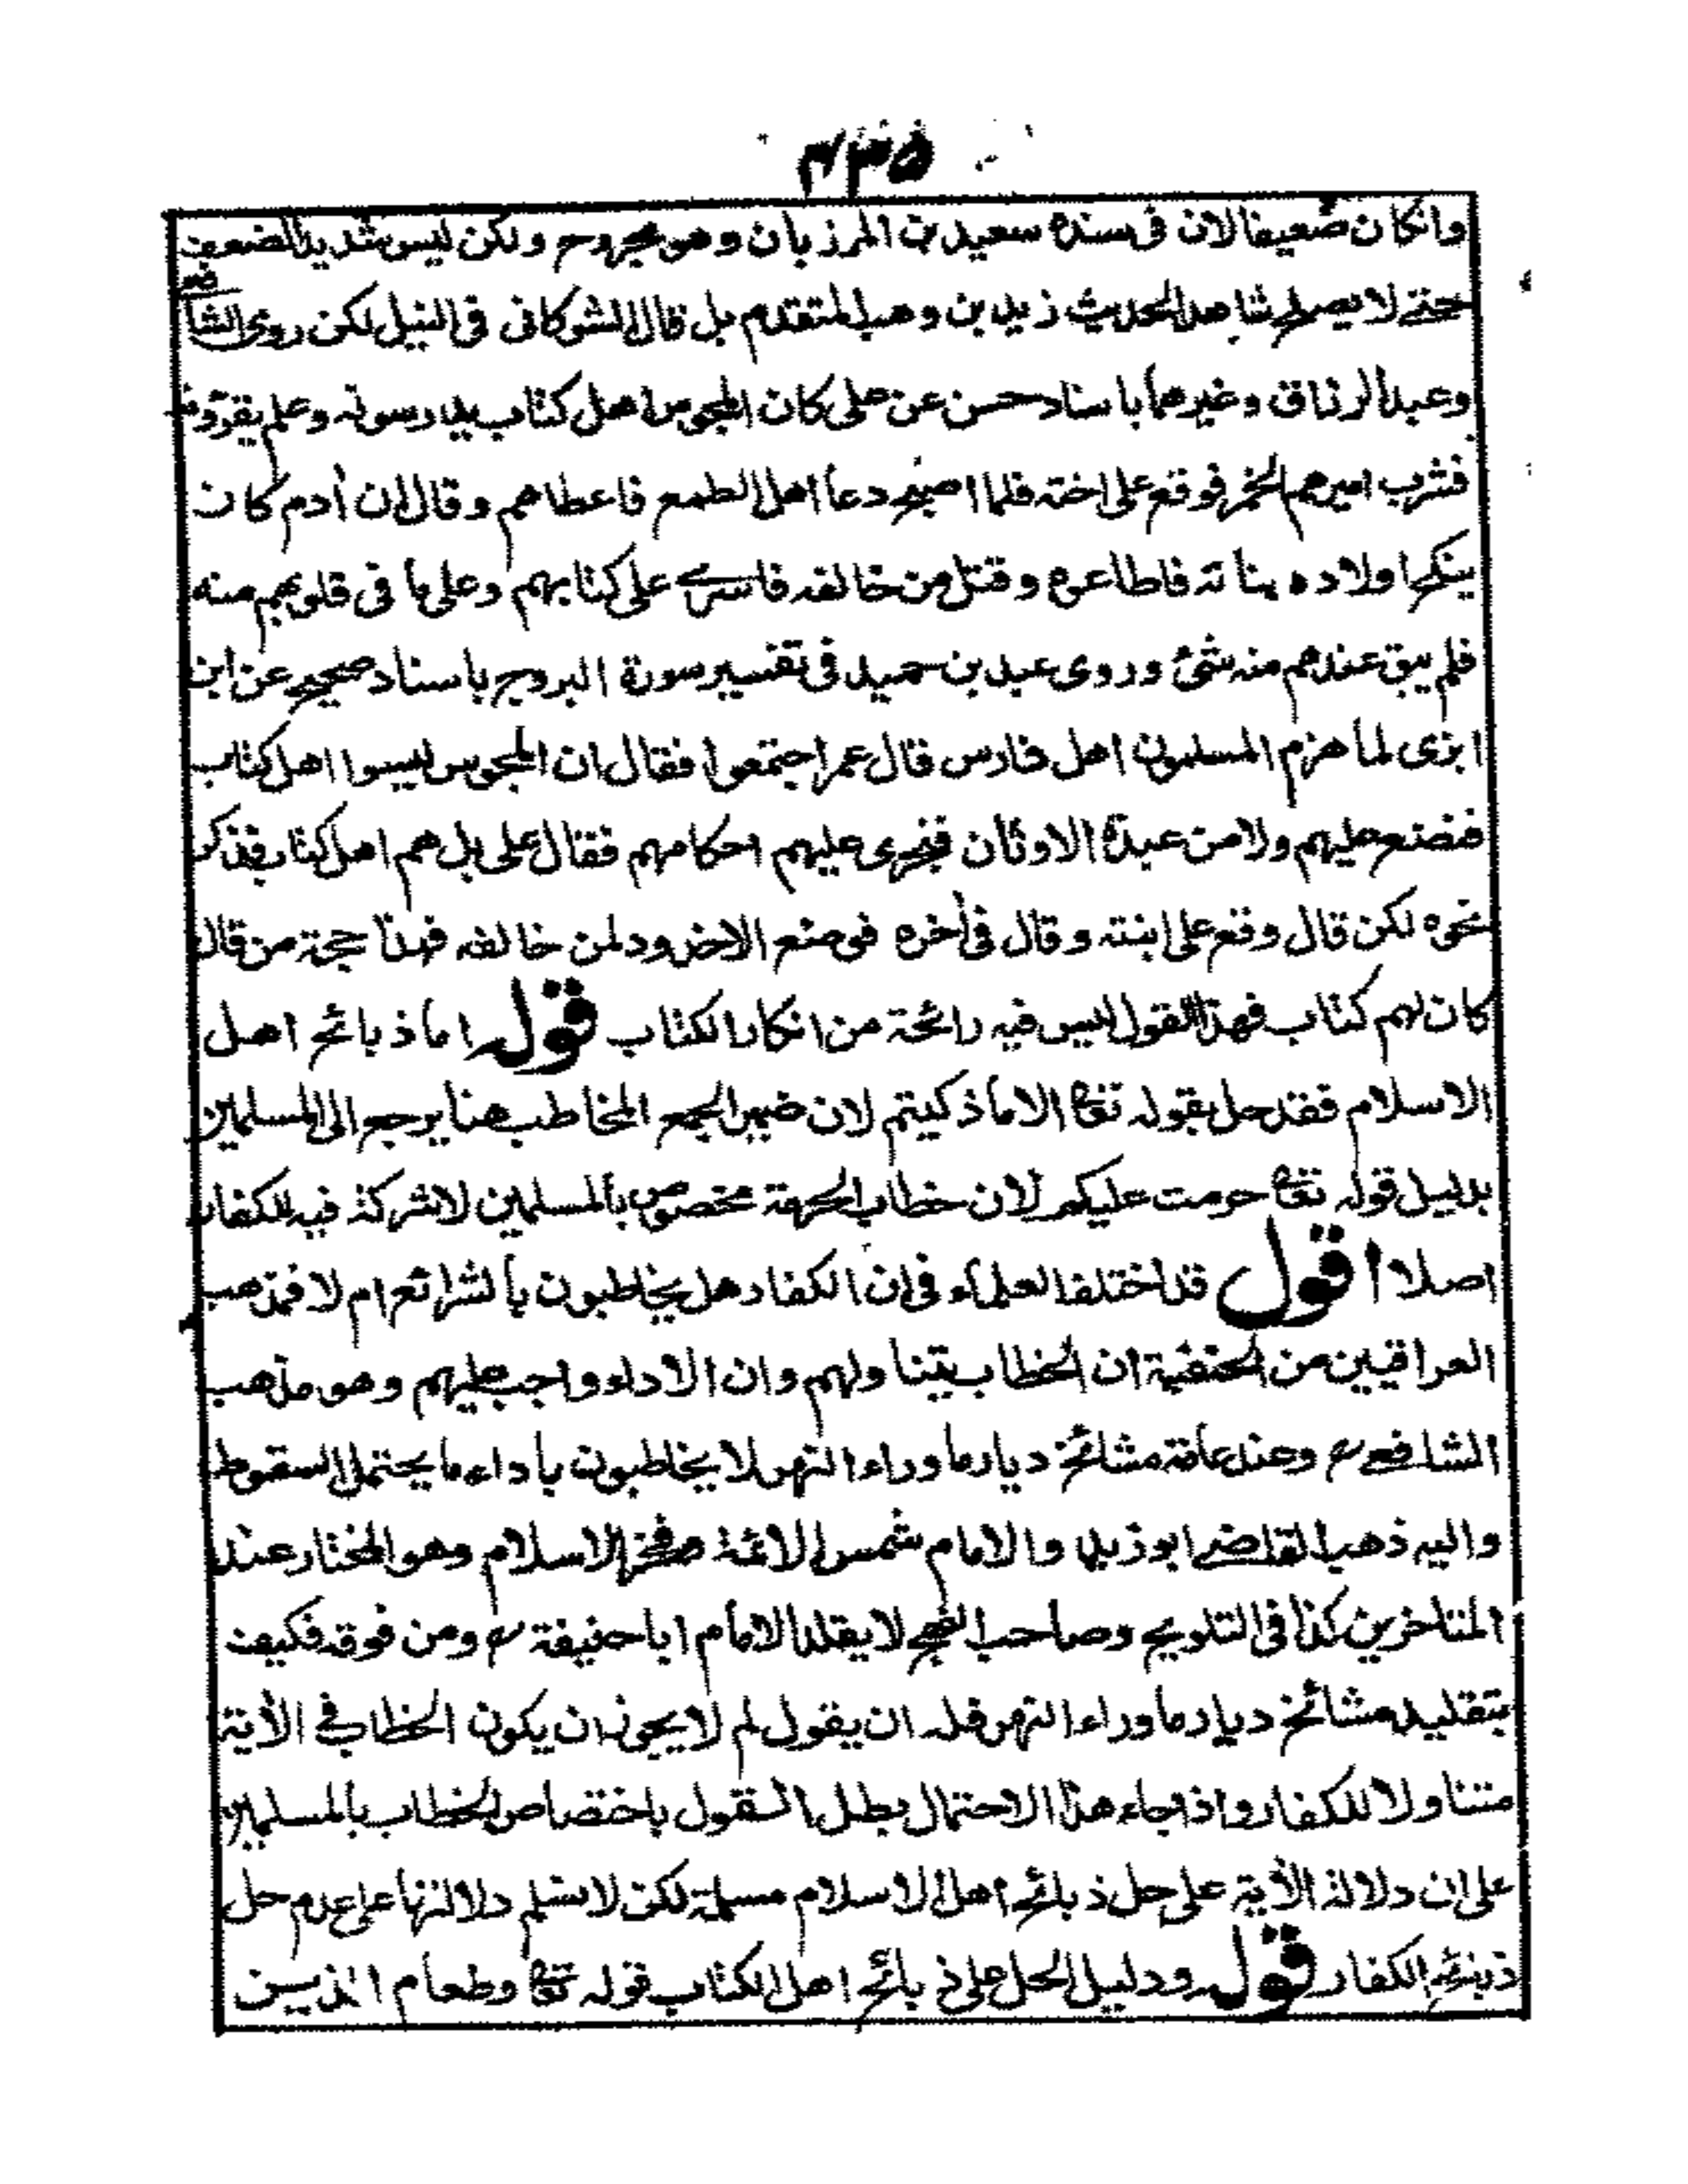 ٢٣٥
وانكان ضعيفا لان فى سنده سعيد بن المرزبان وهو مجروح ولكن ليس شديد الضعف
حتى لا يصلح شاهد الحديث زيد بن وهب المتقدم بل قال الشوكانى فى النيل لكن روى الشافعى
وعبد الرزاق وغيرهما باسناد حسن عن على كان المجوس اهل كتاب يدرسونه وعلم يقرؤونه
فشرب اميرهم الخمر فوقع على اخته فلما اصبح دعا اهل الطمع فاعطاهم وقال ان أدم كان
ينكح اولاده بناته فاطاعوه وقتل من خالفه فاسرى على كتابهم وعلى ما فى قلوبهم منه
فلم يبق عندهم منه شئ وروى عبد بن حميد فى تفسير سورة البروج باسناد صحيح عن ابن
ابزى لما هزم المسلمون اهل فارس قال عمر اجتمعوا فقال ان المجوس ليسوا اهل كتاب
فنضع عليهم ولا من عبدة الاوثان فنجرى عليهم احكامهم فقال على بل هم اهل كتاب فذكر
نحوه لكن قال وقع على ابنته وقال فى أخره فوضع الاخدود لمن خالفه فهذا حجة من قال
كان لهم كتاب فهذا القول ليس فيه رائحة من انكار الكتاب قوله اما ذبائح اهل
الاسلام فقد حل بقوله تعا الا ما ذكيتم لان ضمير الجمع المخاطب هنا يرجع الى المسلمين
بدليل قوله تعا حرمت عليكم لان خطاب الحرمة مخصوص بالمسلمين لا شركة فيه للكفار
اصلا اقول قد اختلف العلماء فى ان الكفار هل يخاطبون بالشرائع ام لا فمذهب
العراقيين من الحنفية ان الخطاب يتناولهم وان الاداء واجب عليهم وهو مذهب
الشافعى رح وعند عامة مشائخ ديار ما وراء النهر لا يخاطبون باداء ما يحتمل السقوط
واليه ذهب القاضى ابو زيد والامام شمس الائمة وفخر الاسلام وهو المختار عند
المتاخرين كذا فى التلويح وصاحب النهج لا يقلد الامام ابا حنيفة رح ومن فوقه فكيف
بتقليد مشائخ ديار ما وراء النهر فله ان يقول لم لا يجوز ان يكون الخطاب فى الأية
متناولا للكفار واذا جاء هذا الاحتمال بطل القول باختصاص الخطاب بالمسلمين
على ان دلالة الأية على حل ذبائح اهل الاسلام مسلمة لكن لا نسلم دلالتها على عدم حل
ذبائح الكفار قوله ودليل الحل على ذبائح اهل الكتاب قوله تعا وطعام الذين